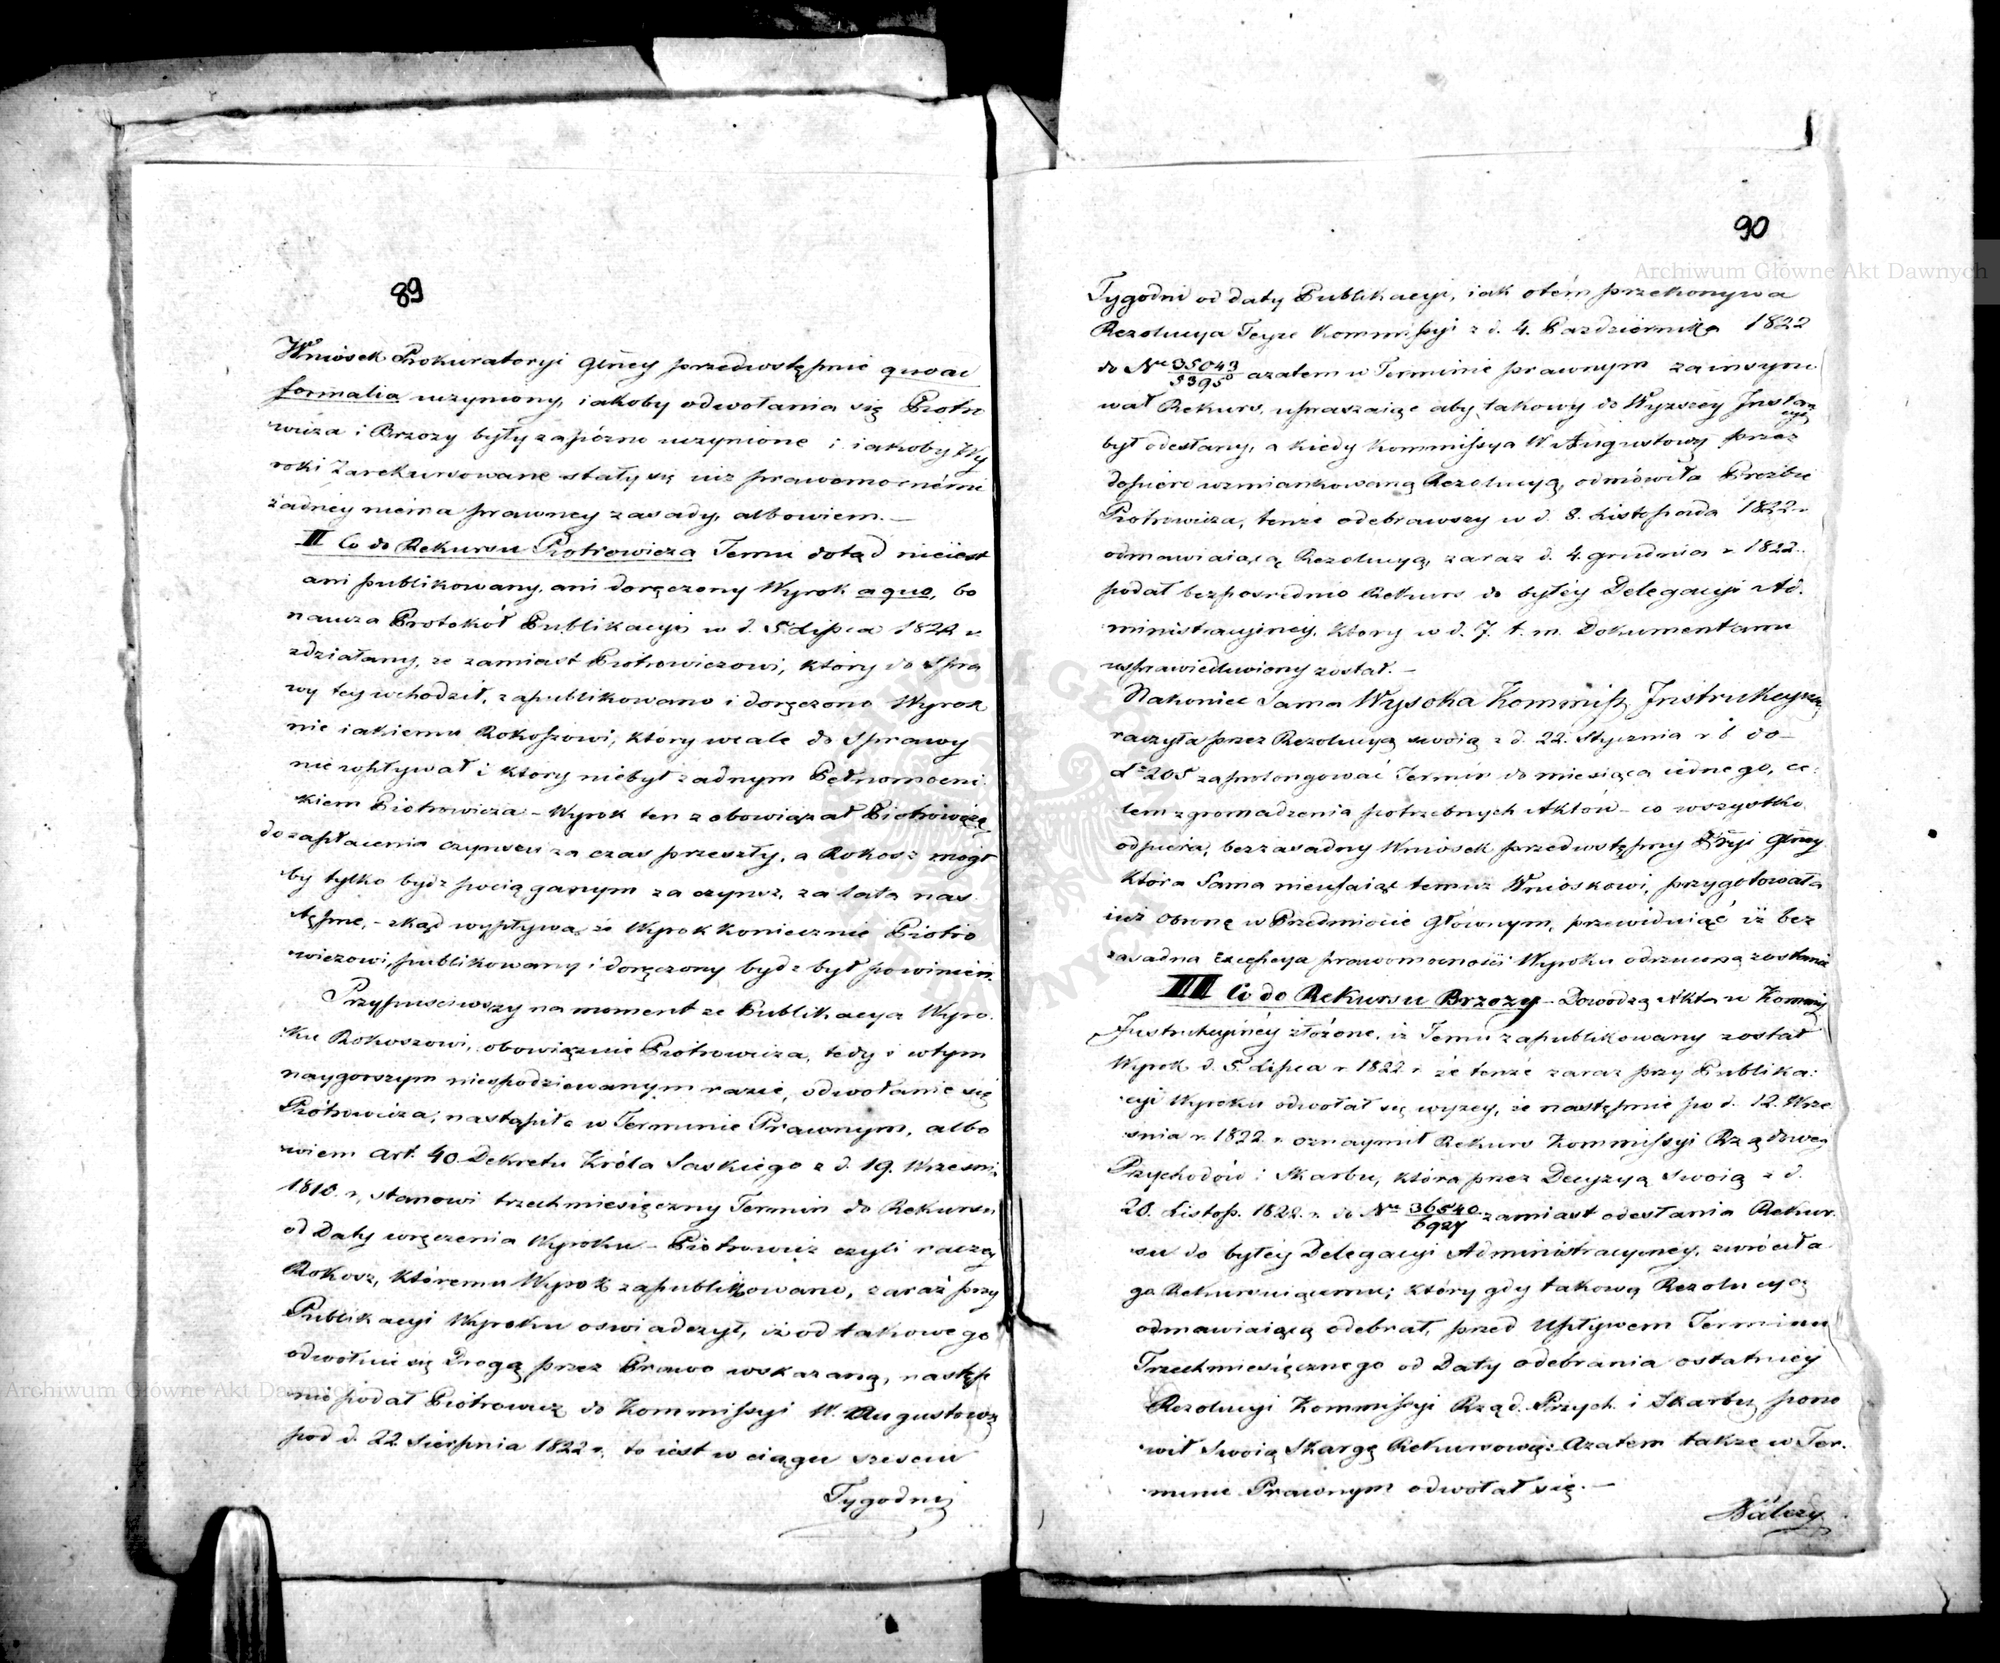 89
Wniosek Prokuratoryi Głney przedwstępnie quoad
formalia uczyniony, iakoby odwołania się Piotro
wicza i Brzozy były zapóźno uczynione i iakoby Wy
roki Zarekursowane stały się iuż prawomocnémi
żadnéy niema prawney zasady, albowiem. —
II Co do Rekursu Piotrowicza Temu dotąd nieiest
ani publikowany, ani doręczony Wyrok a quo, bo
naucza Protokół Publikacyi w d. 5. Lipca 1822 r.
zdziałany, że zamiast Piotrowiczowi, który do Spra
wy tey wchodził, zapublikowano i doręczono Wyrok
nie iakiemu Rokoszowi, który wcale do Sprawy
nie wpływał i ktory niebył żadnym Pełnomocni
kiem Piotrowicza – Wyrok ten zobowiązał Piotrowicza
do zapłacenia czynszu za czas przeszły, a Rokosz mógł
by tylko bydź pociąganym za czynsz, za lata nas
tępne, – zkąd wypływa, że Wyrok koniecznie Piotro
wiczowi, publikowany i doręczony bydź był powinien.
Przypuściwszy na moment że Publikacya Wyro
ku Rokoszowi, obowiązuie Piotrowicza, tedy i wtym
naygorszym niespodziewanym razie, odwołanie się
Piotrowicza, nastąpiło w Terminie Prawnym, albo
wiem art. 40 Dekretu Króla Saskiego z d. 19. Wrzesnia
1810. r. stanowi trzechmiesięczny Termin do Rekursu
od Daty wręczenia Wyroku – Piotrowicz czyli raczey
Rokosz, któremu Wyrok zapublikowano, zaraz przy
Publikacyi Wyroku oswiadczył, iż od takowego
odwołuie się Drogą przez Prawo wskazaną, następ
nie podał Piotrowicz do Kommissyi W. Augustows
pod d. 22 Sierpnia 1822 r. to iest w ciągu szesciu
Tygodni
90
Tygodni od daty Publikacyi, iak otém przekonywa
Rezolucya Teyże Kommissyi z d. 4. Pazdziernika 1822
do Nru 35043/5395 azatem w Terminie prawnym zainsynu
wał Rekurs, upraszaiąc aby takowy do Wyższey Instan
cyi
był odesłany, a kiedy Kommissya W. Augustows przez
dopiero wzmiankowaną Rezolucyą, odmówiła Proźbie
Piotrowicza, tenże odebrawszy w d. 8. Listopada 1822 r.
odmawiaiącą Rezolucyą, zaraz d. 4. grudnia r. 1822.
podał bezposrednio Rekurs do byłéy Delegacyi Ad
ministracyinéy, ktory w d. 7. t. m. Dokumentami
usprawiedliwiony został. –
Nakoniec Sama Wysoka Kommiss Instrukcyina
raczyła przez Rezolucyą swoią z d. 22. Stycznia r b do
№ 205 zaprolongować Termin do miesiąca iednego, ce
lem zgromadzenia potrzebnych Aktów – co wszystko
odpiera, bezzasadny Wniosek przedwstępny Pryi Głney
która Sama nieufaiąc temuż Wnioskowi, przygotowała
iuż obronę w Przedmiocie Głównym, przewiduiąc iż bez
zasadna Excepcya prawomocności Wyroku odrzuconą zostanie
III Co do Rekursu Brzozy – Dowodzą Akta w Kommiss
Instrukcyinéy złożone, iż Temu zapublikowany został
Wyrok d. 5. Lipca r. 1822 r. że tenże zaraz przy Publika
cyi Wyroku odwołał się wyzey, że następnie po d. 12. Wrze
śnia r. 1822 r. oznaymił Rekurs Kommissyi Rządowey
Przychodów i Skarbu, która przez Decyzyą swoią z d.
20. Listop. 1822. r. do Nru 36540/6927 zamiast odesłania Rekur
su do byłéy Delegacyi Administracyinéy, zwróciła
go Rekursuiącemu; który gdy takową Rezolucyą
odmawiaiącą odebrał, przed Upływem Terminu
Trzechmiesięcznego od Daty odebrania ostatniéy
Rezolucyi Kommissyi Rząd. Przych. i Skarbu pono
wił Swoią Skargę Rekursową: Azatem także w Ter
minie Prawnym odwołał się. –
Archiwum Główne Akt Dawnych
Archiwum Główne Akt Dawnych